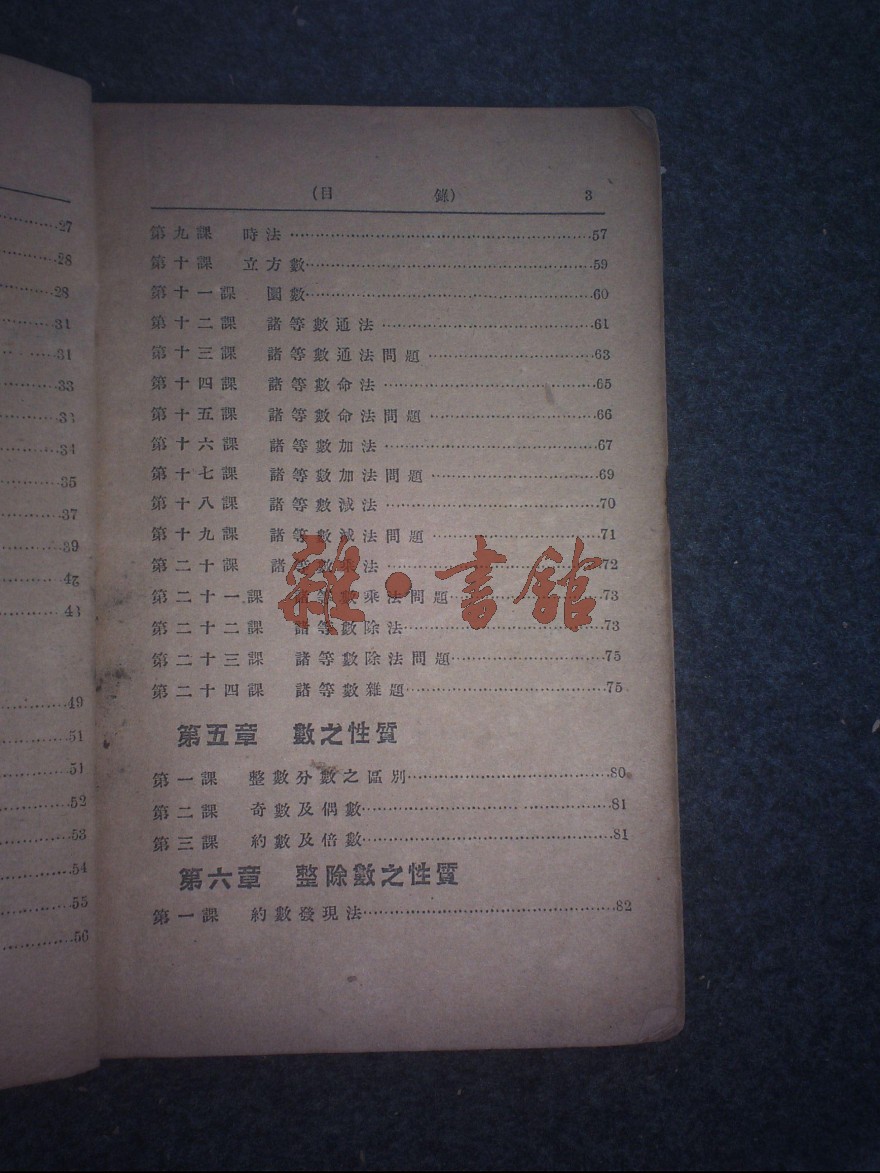 27
28
28
31
31
33
33
34
35
37
39
42
43
49
51
51
52
53
54
55
56
(目 錄) 3
第九課 時法……57
第十課 立方數……59
第十一課 圓數……60
第十二課 諸等數通法……61
第十三課 諸等數通法問題……63
第十四課 諸等數命法……65
第十五課 諸等數命法問題……66
第十六課 諸等數加法……67
第十七課 諸等數加法問題……69
第十八課 諸等數減法……70
第十九課 諸等數減法問題……71
第二十課 諸等數乘法……72
第二十一課 諸等數乘法問題……73
第二十二課 諸等數除法……73
第二十三課 諸等數除法問題……75
第二十四課 諸等數雜題……75
第五章 數之性質
第一課 整數分數之區別……80
第二課 奇數及偶數……81
第三課 約數及倍數……81
第六章 整除數之性質
第一課 約數發現法……82
雜·書館